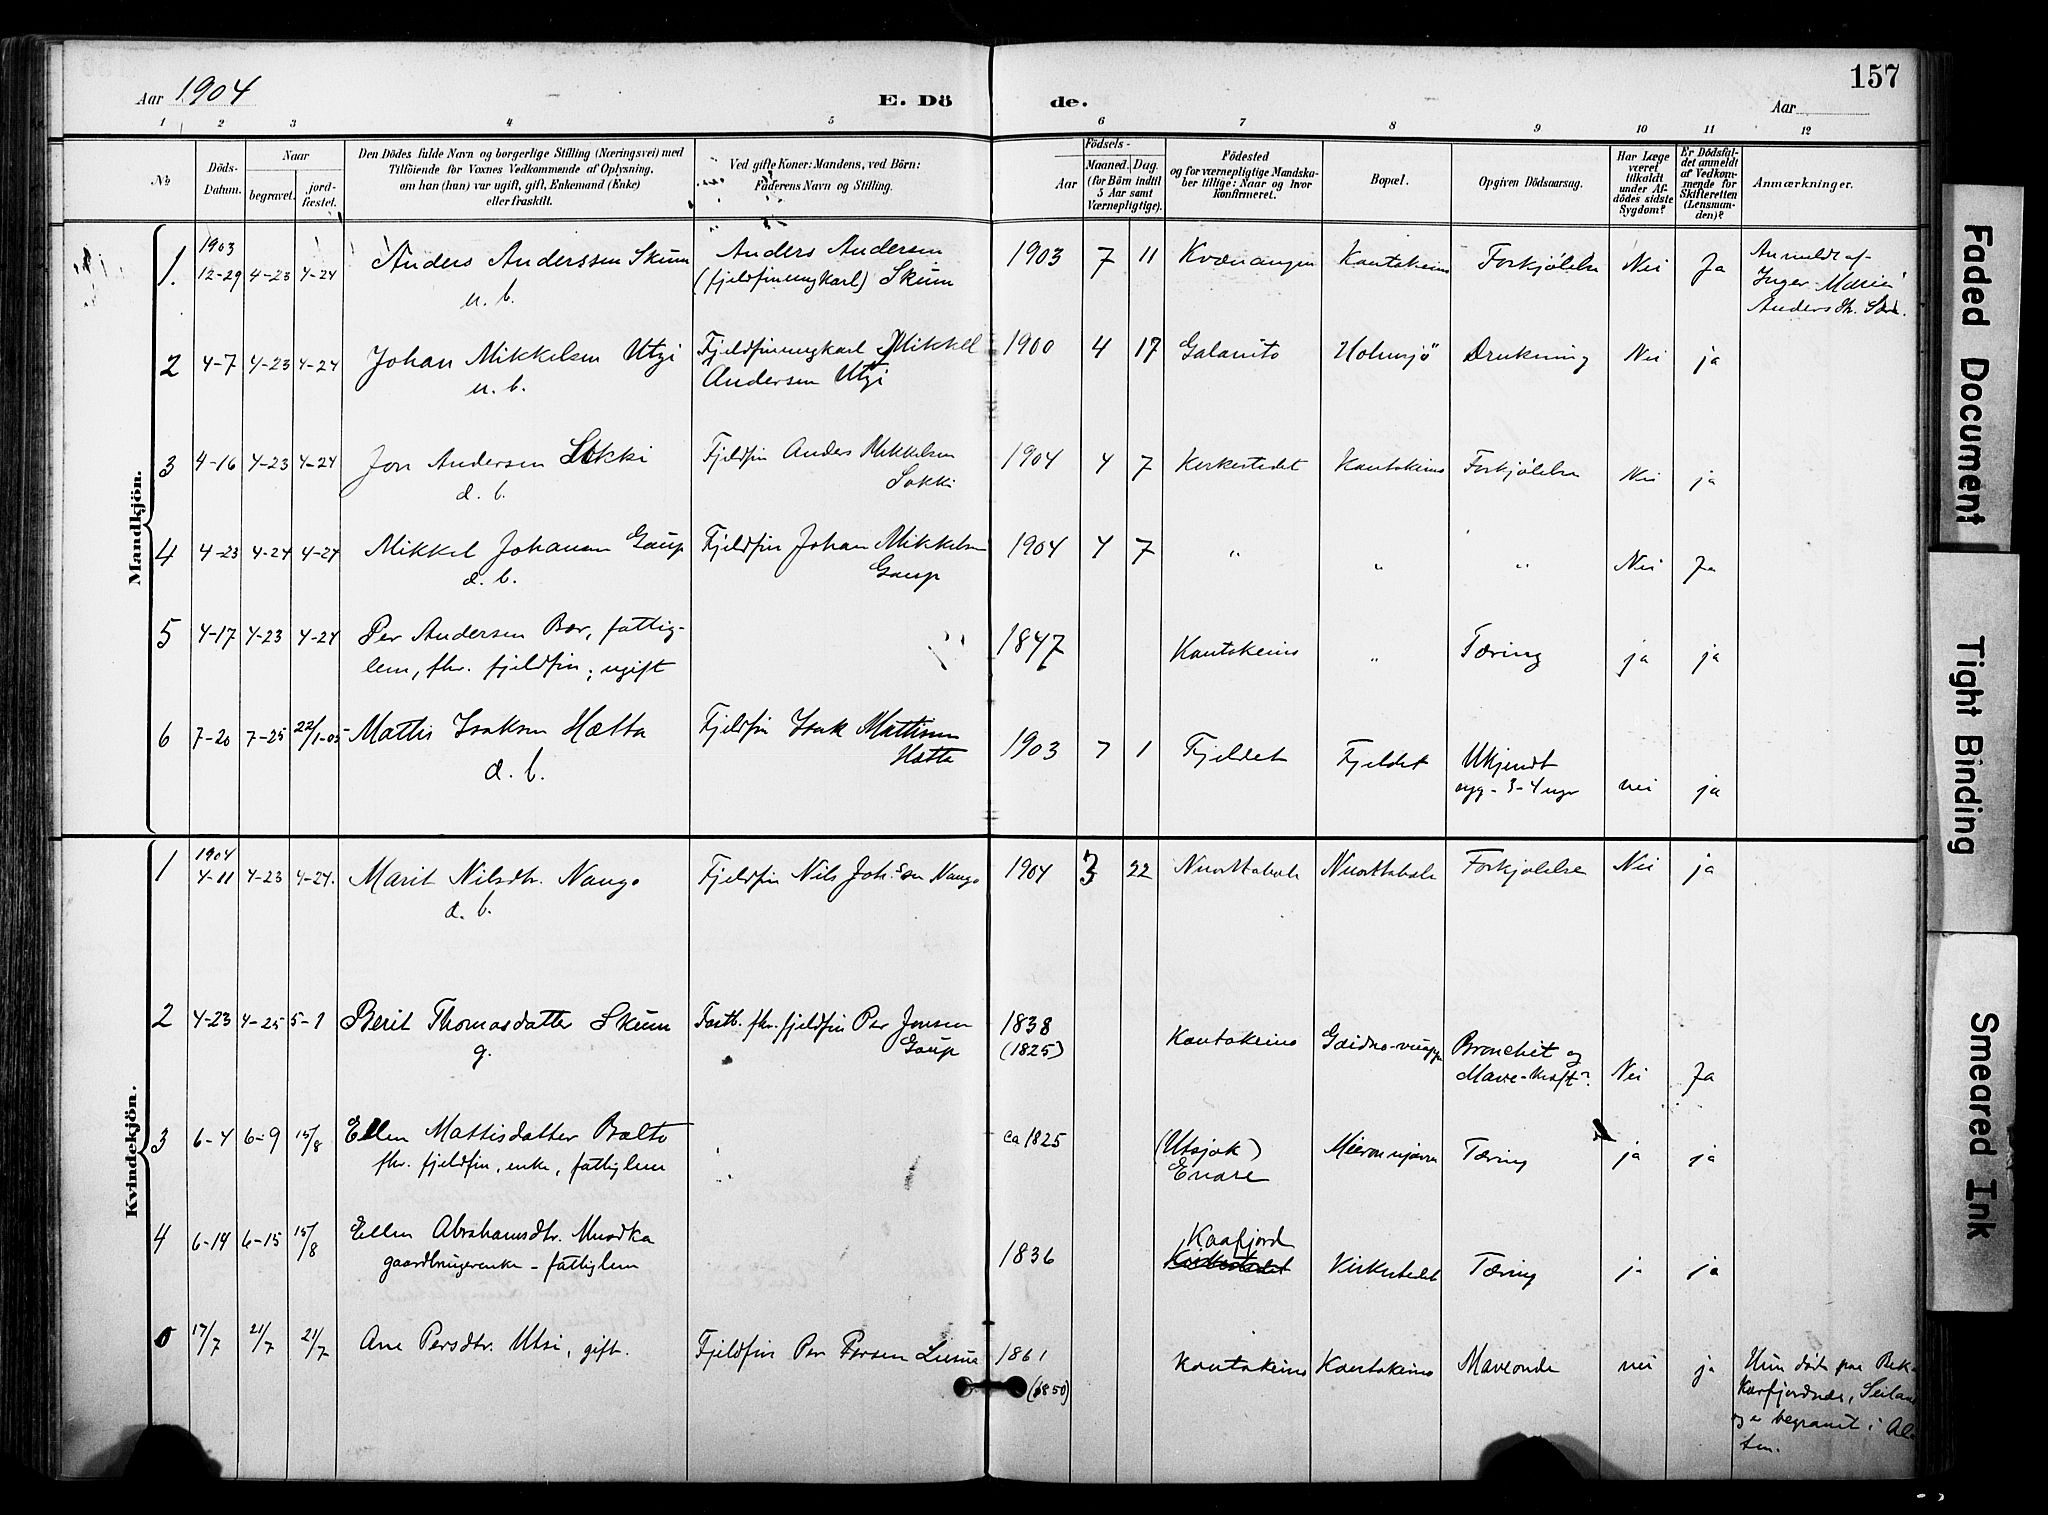 157
Aar 1904
E. Dö de.
Aar
1 2 3 4 5 6 7 8 9 10 11 12
No
Döds-Datum.
Naar
begravet.
jord-fæstet.
Den Dödes fulde Navn og borgerlige Stilling (Næringsvei) med
Tilföiende for Voxnes Vedkommende af Oplysning,
om han (hun) var ugift, gift, Enkemand (Enke)
eller fraskilt.
Ved gifte Koner: Mandens, ved Börn:
Faderens Navn og Stilling.
Födsels-
Aar
Maaned.
Dag.
(for Börn indtil
5 Aar samt
Værnepligtige).
Födested
og for værnepligtige Mandska-
ber tillige: Naar og hvor
konfirmeret.
Bopæl.
Opgiven Dödsaarsag.
Har Læge
været
tilkaldt
under Af-
dödes sidste
Sygdom?
Er Dödsfal-
det anmeldt
af Vedkom-
mende for
Skifteretten
(Lensman-
den)?
Anmærkninger.
Mandkjön.
1. 1903 12-29 4-23 4-24 Anders Anderssen Skum Anders Andersen 1903 7 11 Kvænangen Kautokeino Forkjølelse Nei Ja Anmeldt af
u. b. (fjeldfinungkarl) Skum Inger Marie
Anders
2 4-7 4-23 4-24 Johan Mikkelsen Utsi Fjeldfinungkarl Mikkel 1900 4 17 Galanito Holmsjö Drukning Nei ja
u. b. Andersen Utsi
3 4-16 4-23 4-24 Jon Andersen Sokki Fjeldfin Anders Mikkelsen 1904 4 7 Kirkestedet Kautokeino Forkjølelse Nei ja
d. b. Sokki
4 4-23 4-24 4-24 Mikkel Johansen Gaup Fjeldfin Johan Mikkelsen 1904 4 7 " " " Nei Ja
d. b. Gaup
5 4-17 4-23 4-24 Per Andersen Bær, fattig- 1847 Kautokeino " Tæring ja ja
lem, fhr. fjeldfin; ugift
6 7-20 7-25 22/1-05 Mattis Isaksen Hætta Fjeldfin Isak Mattisen 1903 7 1 Fjeldet Fjeldet Ukjendt nei ja
d. b. Hætta syg - 3-4 uger
Kvindekjön.
1 1904 4-11 4-23 4-24. Marit Nilsdtr. Nango Fjeldfin Nils Joh:sen Nango 1904 3 22 Nuorttabæle Nuorttabæle Forkjølelse Nei ja
d. b.
2 4-23 4-25 5-1 Berit Thomasdatter Skum fhr. fjeldfin Per Jonsen 1838 Kautokeino Bronchit og Nei Ja
g. Gaup (1825) Mave-
3 6-4 6-9 15/8 Ellen Mattisdatter Balto ca 1825 (Utsjok) Tæring ja ja
fhr. fjeldfin, enke, fattiglem Enare
4 6-14 6-15 15/8 Ellen Abrahamsdtr. Muodka 1836 Kaafjord Kirkestedet Kirkestedet Tæring ja ja
gaardbrugerenke - fattiglem
5 17/7 21/7 21/7 Ane Persdtr. Utsi, gift. Fjeldfin Per Persen 1861 Kautokeino Kautokeino Maveonde nei ja Hun døde paa Bek-
(1850) karfjordnes, Seiland
og er begravet i Al-
ten.
Faded Document
Tight Binding
Smeared Ink